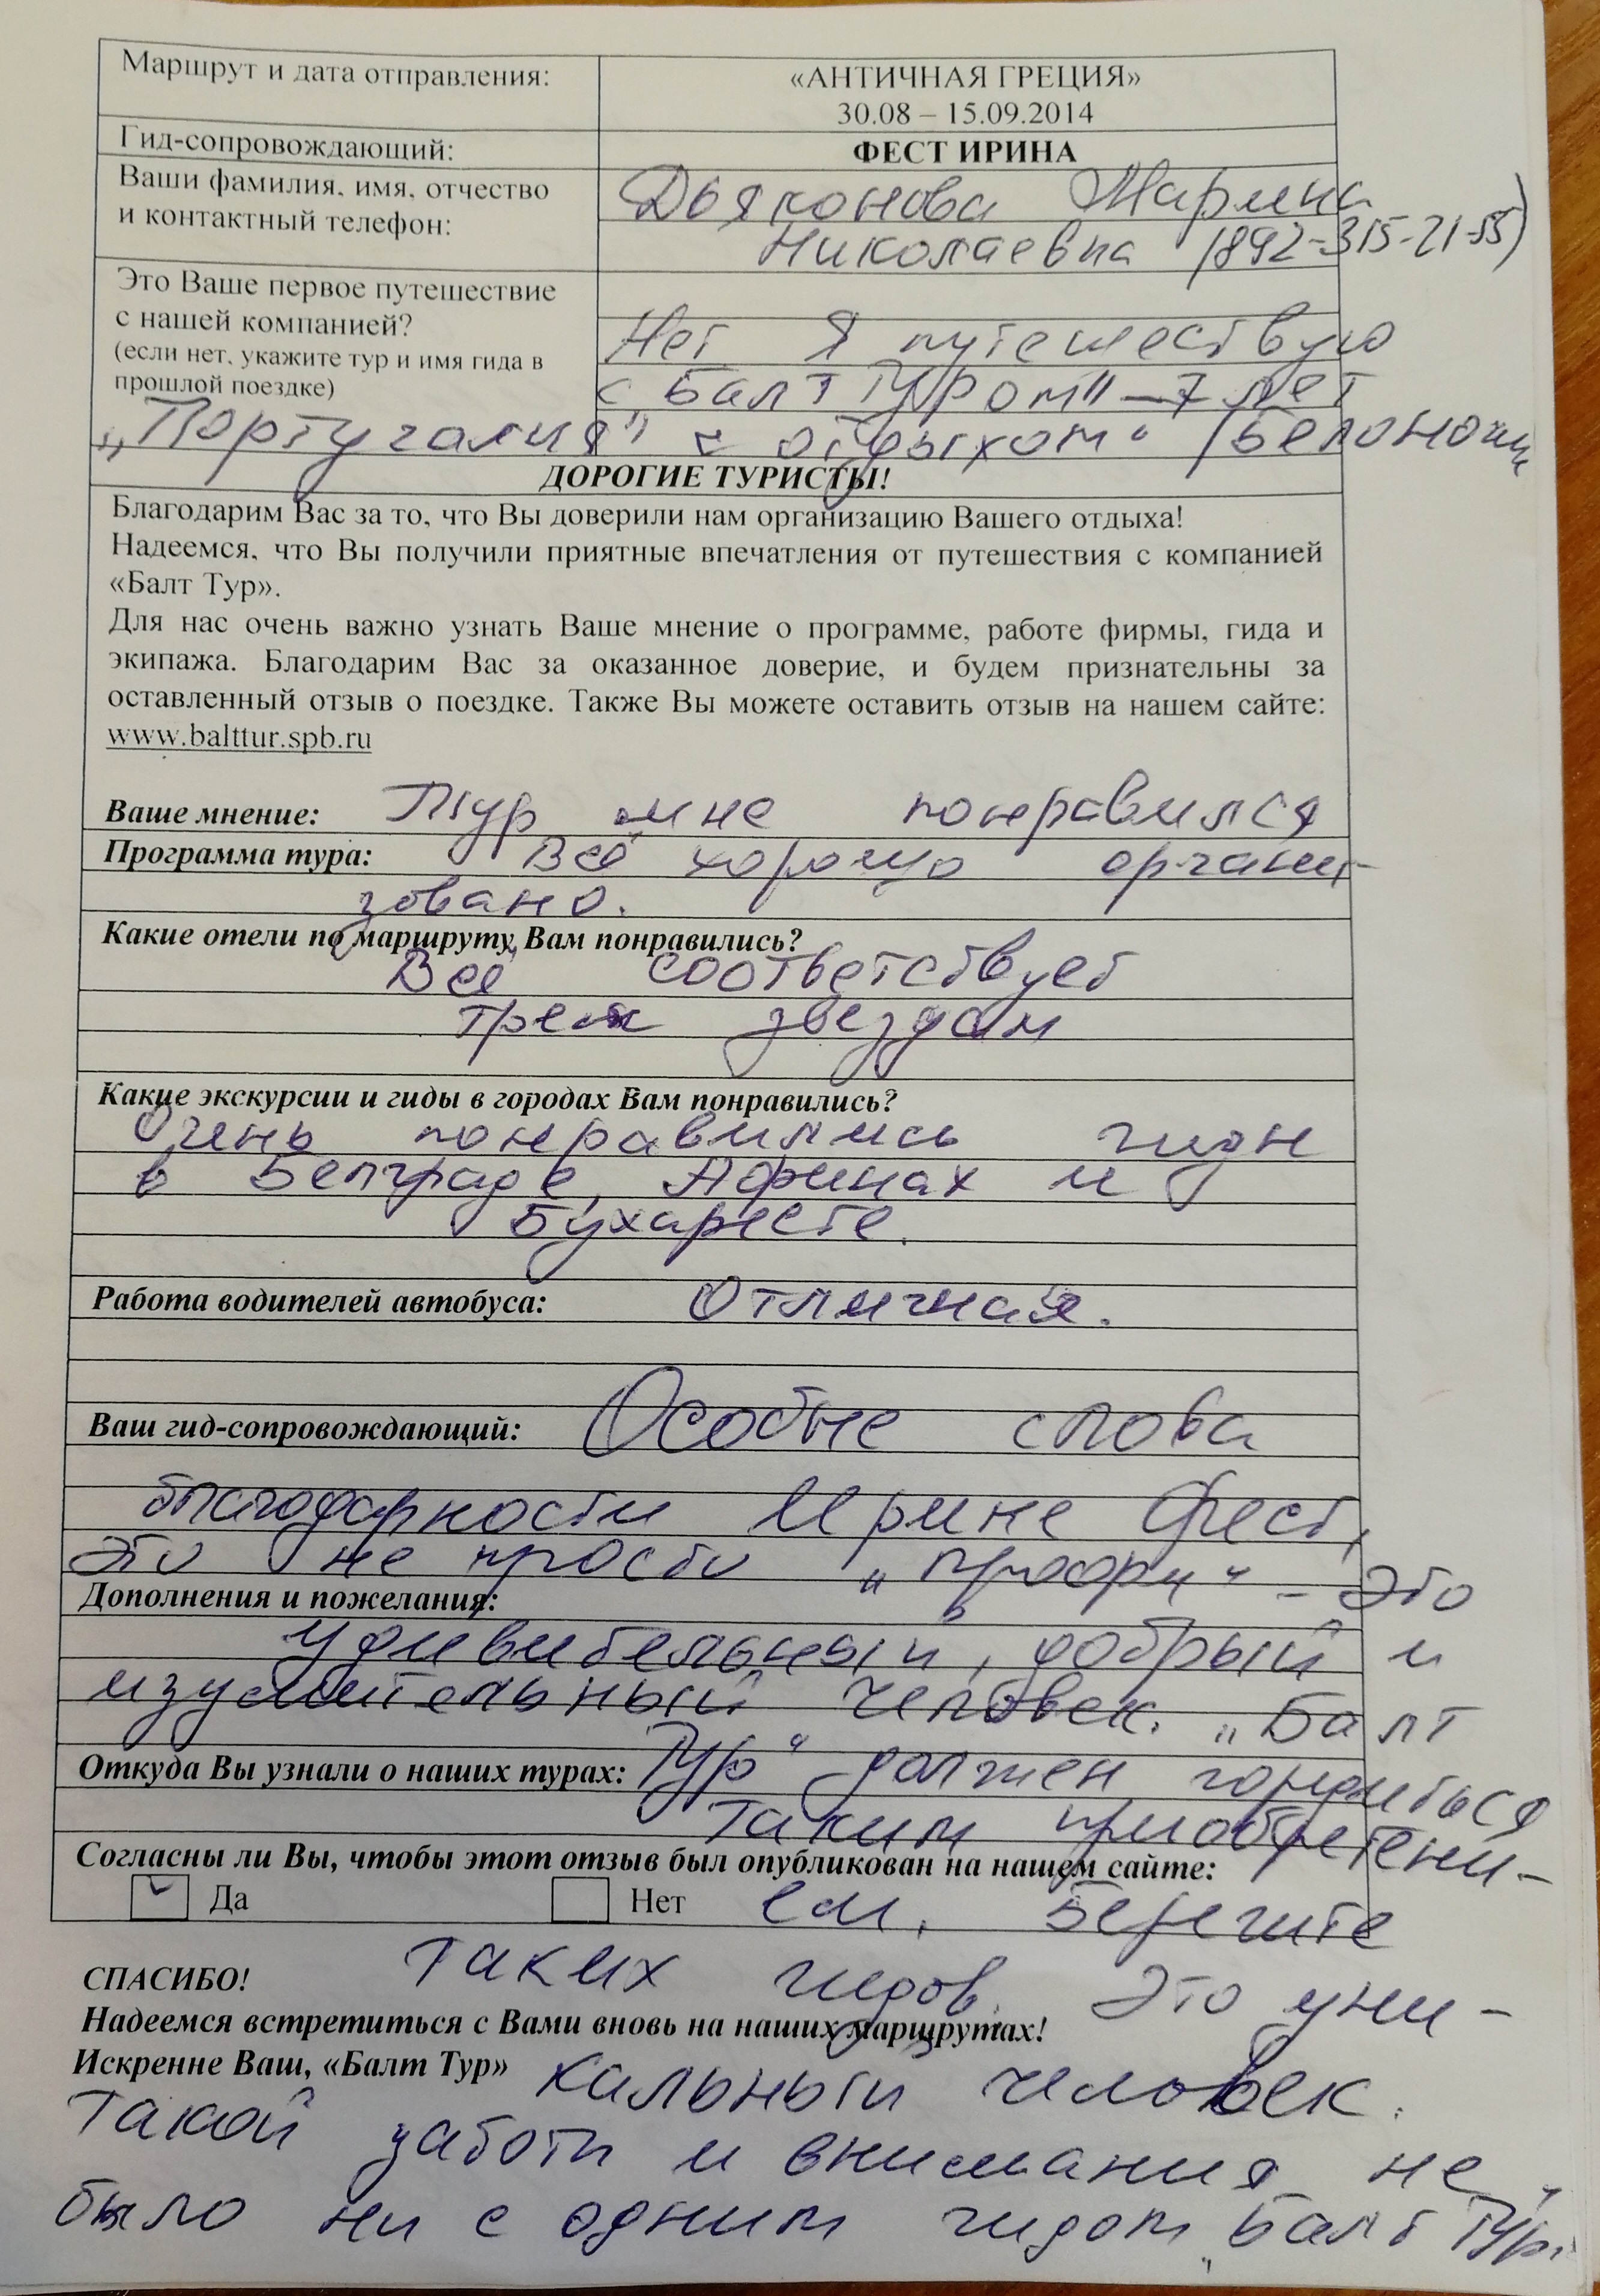 Маршрут и дата отправления: «АНТИЧНАЯ ГРЕЦИЯ»
30.08 – 15.09.2014
Гид-сопровождающий: ФЕСТ ИРИНА
Ваши фамилия, имя, отчество Дьяконова Марина
и контактный телефон: Николаевна (892-315-21-55)
Это Ваше первое путешествие
с нашей компанией? Нет Я путешествую
(если нет, укажите тур и имя гида в
прошлой поездке) с „Балт Туром" – 7 лет
„Португалия" с отдыхом"
ДОРОГИЕ ТУРИСТЫ!
Благодарим Вас за то, что Вы доверили нам организацию Вашего отдыха!
Надеемся, что Вы получили приятные впечатления от путешествия с компанией
«Балт Тур».
Для нас очень важно узнать Ваше мнение о программе, работе фирмы, гида и
экипажа. Благодарим Вас за оказанное доверие, и будем признательны за
оставленный отзыв о поездке. Также Вы можете оставить отзыв на нашем сайте:
www.balttur.spb.ru
Ваше мнение: Тур мне понравился
Программа тура: Всё хорошо органи-
зовано.
Какие отели по маршруту Вам понравились?
Всё соответствует
трём звездам
Какие экскурсии и гиды в городах Вам понравились?
Очень понравились гиды
в Белграде, Афинах и
Бухаресте.
Работа водителей автобуса: Отличная.
Ваш гид-сопровождающий: Особые слова
благодарности Ирине Фест,
это не просто „профи" – это
Дополнения и пожелания:
удивительный, добрый и
изумительный человек. „Балт
Откуда Вы узнали о наших турах: Тур" должен гордиться
таким приобретени-
Согласны ли Вы, чтобы этот отзыв был опубликован на нашем сайте:
Да Нет ем. Берегите
таких гидов. Это уни-
СПАСИБО!
Надеемся встретиться с Вами вновь на наших маршрутах!
Искренне Ваш, «Балт Тур» кальный человек.
Такой заботы и внимания не
было ни с одним гидом „Балт Тур"